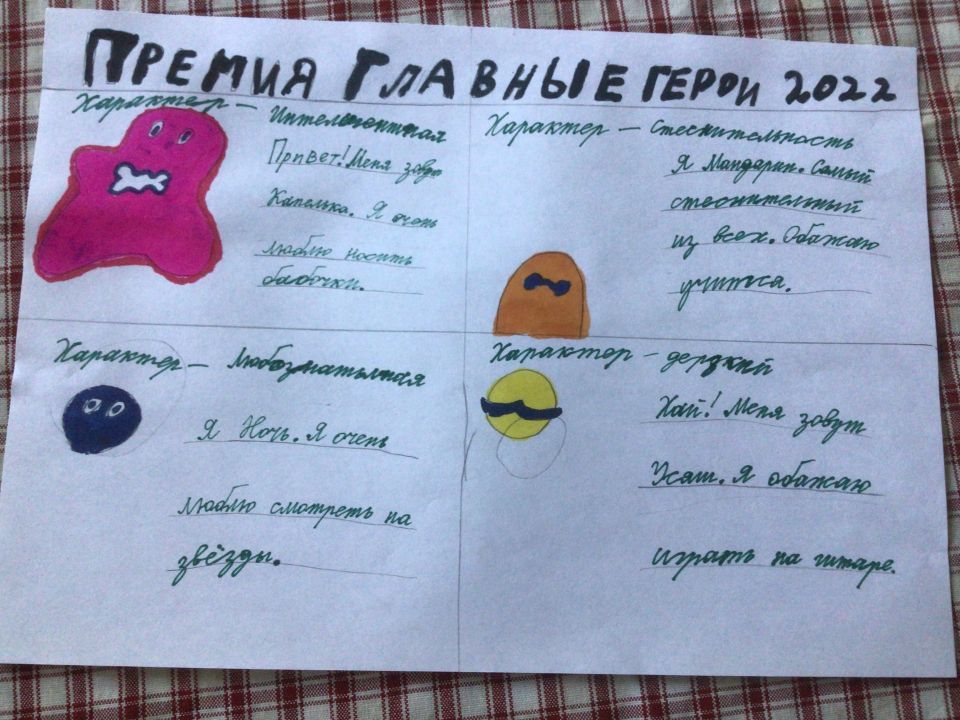 ПРЕМИЯ ГЛАВНЫЕ ГЕРОИ 2022
Характер – Интелегентная
Привет! Меня зовут
Капелька. Я очень
люблю носить
бабочки.
Характер – Стеснительность
Я Мандарин. Самый
стеснительный
из всех. Обажаю
учитса.
Характер – Любознательная
Я Ночь. Я очень
люблю смотреть на
звёзды.
Характер – дерзкий
Хай! Меня зовут
Усаш. Я обажаю
играть на гитаре.